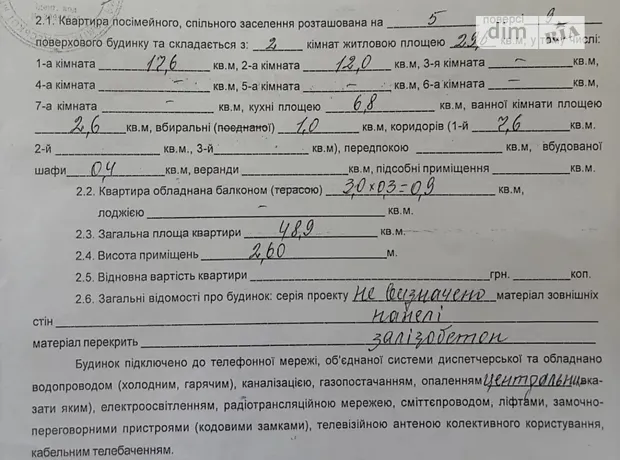 2.1. Квартира посімейного, спільного заселення розташована на 5 поверсі 9
поверхового будинку та складається з: 2 кімнат житловою площею 29,6 кв.м, у тому числі:
dim ria
1-а кімната 17,6 кв.м, 2-а кімната 12,0 кв.м, 3-я кімната – кв.м,
4-а кімната – кв.м, 5-а кімната – кв.м, 6-а кімната – кв.м,
7-а кімната – кв.м, кухні площею 6,8 кв.м, ванної кімнати площею
2,6 кв.м, вбиральні (поєднаної) 1,0 кв.м, коридорів (1-й 7,6 кв.м.
2-й кв.м., 3-й кв.м), передпокою кв.м, вбудованої
шафи 0,4 кв.м, веранди кв.м, підсобні приміщення кв.м.
2.2. Квартира обладнана балконом (терасою) 3,0 x 0,3 = 0,9 кв.м,
лоджією – кв.м.
2.3. Загальна площа квартири 48,9 кв.м.
2.4. Висота приміщень 2,60 м.
2.5. Відновна вартість квартири грн. коп.
2.6. Загальні відомості про будинок: серія проекту не визначено матеріал зовнішніх
стін панелі
матеріал перекрить залізобетон
Будинок підключено до телефонної мережі, об'єднаної системи диспетчерської та обладнано
водопроводом (холодним, гарячим), каналізацією, газопостачанням, опаленням центральн вка-
зати яким), електроосвітленням, радіотрансляційною мережею, сміттєпроводом, ліфтами, замочно-
переговорними пристроями (кодовими замками), телевізійною антеною колективного користування,
кабельним телебаченням.